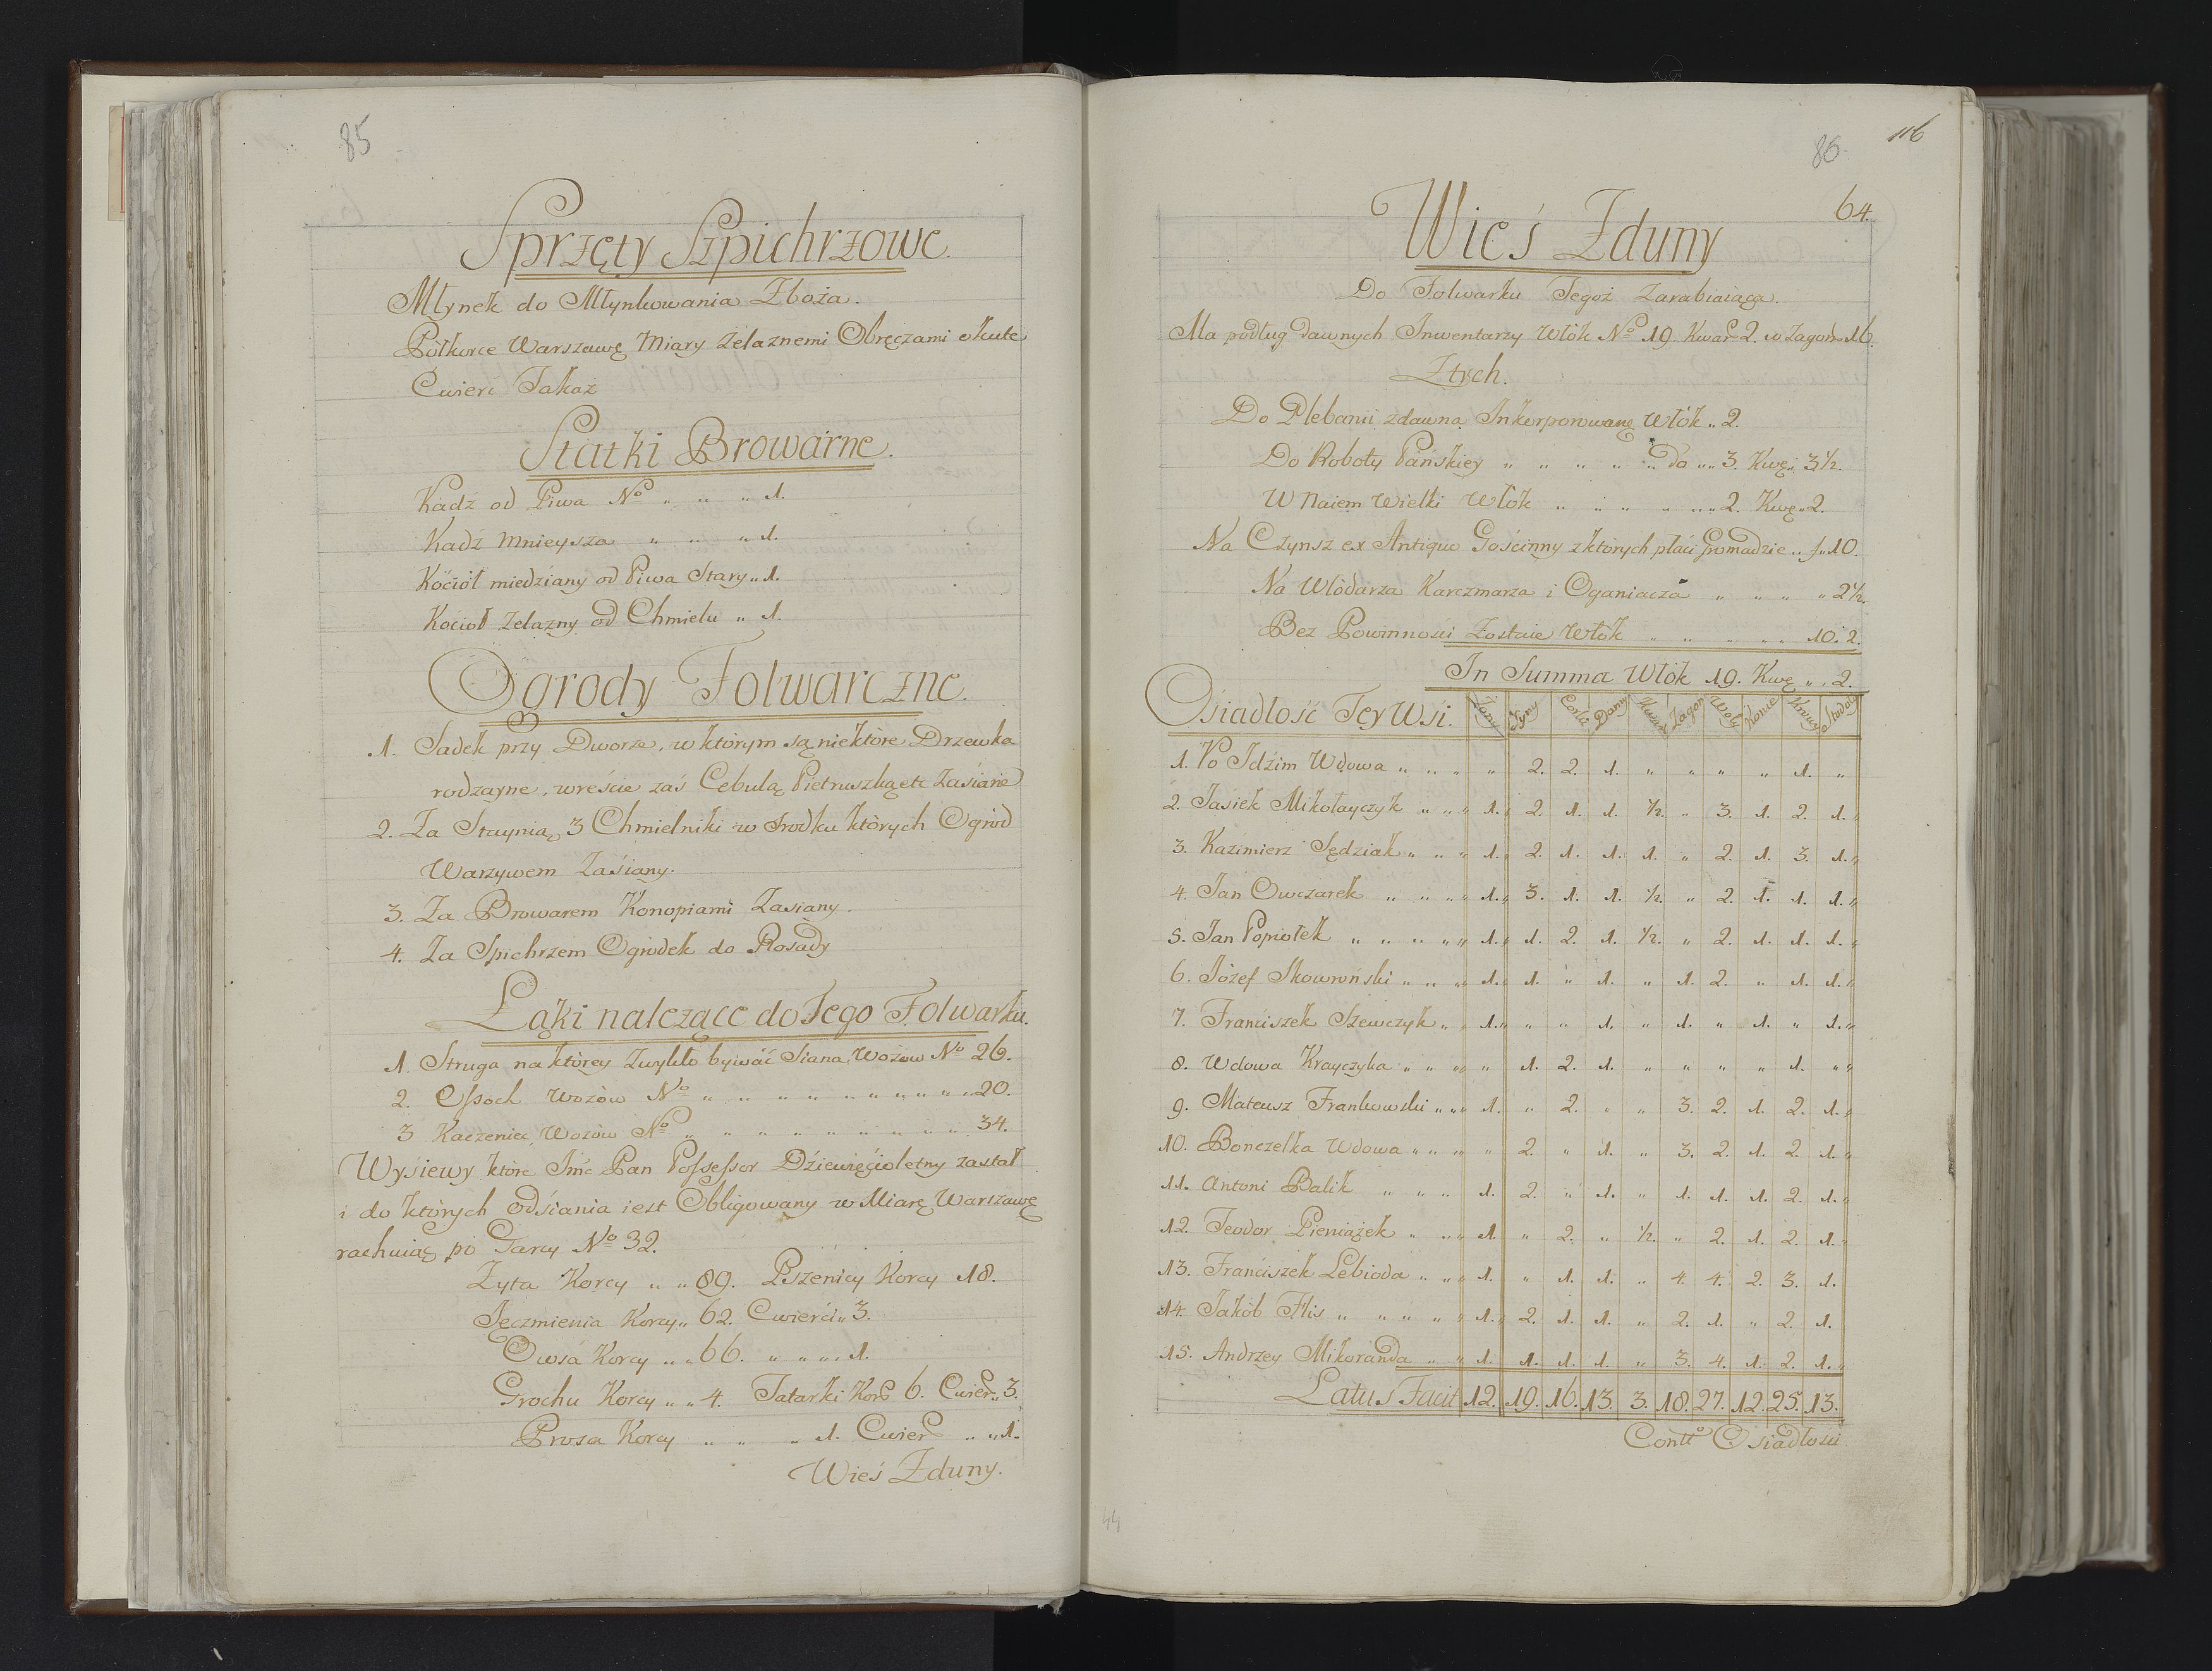 85
Sprzęty Szpichrzowe.
Młynek do Młynkowania Zboża.
Połkorce Warszawę Miary Żelaznemi Obręczami okute
Cwierc Takaż
Statki Browarne.
Kadź od Piwa No „ „ „ 1.
Kadź Mnieysza „ „ „ 1.
Kocioł miedziany od Piwa Stary „ 1.
Kocioł Zelazny od Chmielu „ 1.
Ogrody Folwarczne.
1. Sadek przy Dworze, w którym są niektóre Drzewka
rodzayne, wreście zaś Cebulą Pietruszką etc Zasiane
2. Za Staynią 3 Chmielniki w srodku których Ogród
Warzywem Zaśiany.
3. Za Browarem Konopiami Zasiany.
4. Za Spichrzem Ogrodek do Rosady
Łąki nalezące do Tego Folwarku.
1. Struga na którey Zwykło bywać Siana Wozow No 26.
2. Ossoch Wozów No „ „ „ „ „ „ „ „ 20.
3 Kaczeniec Wozów No „ „ „ „ „ „ „ „ 34.
Wysiewy które Jmć Pan Possessor Dźiewięćioletny zastał
i do których odsiania iest Obligowany w Miarę Warszawę
rachuiąc po Garcy No 32.
Zyta Korcy „ „ 89. Pszenicy Korcy 18.
Jęczmienia Korcy „ 62. Cwierći „ 3.
Owsa Korcy „ „ 66. „ „ „ 1.
Grochu Korcy „ „ 4. Tatarki Kor 6. Cwier „ 3.
Prosa Korcy „ „ „ 1. Cwier „ „ 1.
Wieś Zduny.
116
86
64.
Wieś Zduny
Do Folwarku Tegoż Zarabiaiąca.
Ma podług dawnych Inwentarzy Włók No 19. Kwar 2. w Zagon 16.
Ztych.
Do Plebanii zdawna Inkorporowane Włók „ 2.
Do Roboty Pańskiey „ „ „ „ „ do „ „ 3. Kwę „ 3 1/2.
W Naiem Wielki Włók „ „ „ „ „ „ 2. Kwę „ 2.
Na Czynsz ex Antiquo Gościnny z których płaći Gromadzie „ f „ 10.
Na Włódarza Karczmarza i Oganiacza „ „ „ „ 2 1/2.
Bez Powinnosci Zostaie Włók „ „ „ „ „ 10. 2.
In Summa Włók 19. Kwę „ „ 2.
Osiadłość Tey Wsi. Zony Syny Corki Domy Kwar Zagon Woły Konie Krowy Stodoły
1. Po Idźim Wdowa „ „ „ „ 2. 2. 1. „ „ „ „ 1. „
2. Jasiek Mikołayczyk „ „ „ 1. 2. 1. 1. 1/2. „ 3. 1. 2. 1.
3. Kazimierz Sędziak „ „ „ 1. 2. 1. 1. 1. „ 2. 1. 3. 1.
4. Jan Owczarek „ „ „ 1. 3. 1. 1. 1/2. „ 2. 1. 1. 1.
5. Jan Popiołek „ „ „ „ 1. 1. 2. 1. 1/2. „ 2. 1. 1. 1.
6. Józef Skowroński „ „ „ 1. 1. „ 1. „ 1. 2. „ 1. 1.
7. Franciszek Szewczyk „ „ 1. „ „ 1. „ 1. „ 1. „ 1.
8. Wdowa Krayczyka „ „ „ „ 1. 2. 1. „ „ „ „ 1. „
9. Mateusz Frankowski „ „ 1. „ 2. „ „ 3. 2. 1. 2. 1.
10. Bonczelka Wdowa „ „ „ „ 2. „ 1. „ 3. 2. 1. 2. 1.
11. Antoni Balik „ „ „ 1. 2. „ 1. „ 1. 1. 1. 2. 1.
12. Teodor Pieniążek „ „ „ 1. „ 2. „ 1/2. „ 2. 1. 2. 1.
13. Franciszek Lebioda „ „ 1. „ 1. 1. „ 4. 4. 2. 3. 1.
14. Jakób Flis „ „ „ „ 1. 2. 1. 1. „ 2. 1. „ 2. 1.
15. Andrzey Mikoranda „ „ 1. 1. 1. 1. „ 3. 4. 1. 2. 1.
Latus Facit 12. 19. 16. 13. 3. 18. 27. 12. 25. 13.
Contto Osiadłosci
44